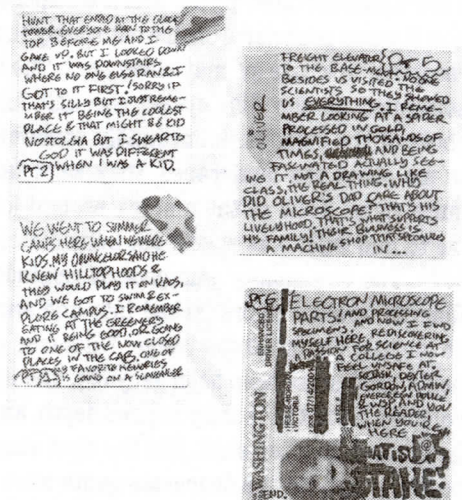 HUNT THAT ENDED AT THE CLOCK
TOWER. EVERYONE RAN TO THE
TOP BEFORE ME AND I
GAVE UP. BUT I LOOKED DOWN
AND IT WAS DOWNSTAIRS
WHERE NO ONE ELSE RAN & I
GOT TO IT FIRST! SORRY IF
THAT'S SILLY BUT I JUST REME-
MBER IT BEING THE COOLEST
PLACE & THAT MIGHT BE KID
NOSTALGIA BUT I SWEAR TO
GOD IT WAS DIFFERENT
WHEN I WAS A KID.
PT 2
WE WENT TO SUMMER
CAMPS HERE WHEN WE WERE
KIDS. MY COUNCELOR SAID HE
KNEW HILLTOPHOODS &
THEY WOULD PLAY IT ON KAOS,
AND WE GOT TO SWIM & EX-
PLORE CAMPUS. I REMEMBER
EATING AT THE GREENERY
AND IT BEING GOOD, OR GOING
TO ONE OF THE NOW CLOSED
PLACES IN THE CAB. ONE OF
MY FAVORITE MEMORIES
PT 1 IS GOING ON A SCAVENGER
PT 5
FREIGHT ELEVATOR
TO THE BASEMENT. NO ONE
BESIDES US VISITED THE
SCIENTISTS SO THEY SHOWED
US EVERYTHING. I REME-
MBER LOOKING AT A SPIDER
PROCESSED IN GOLD,
MAGNIFIED THOUSANDS OF
TIMES, AND BEING
FASCINATED ACTUALLY SEE-
ING IT, NOT A DRAWING LIKE
CLASS, THE REAL THING. WHY
DID OLIVER'S DAD CARE ABOUT
THE MICROSCOPE? THAT'S HIS
LIVELYHOOD, THAT'S WHAT SUPPORTS
HIS FAMILY! THEIR BUSINESS IS
A MACHINE SHOP THAT SPECIALIZES
IN ...
OLIVER
PT 6 ELECTRON MICROSCOPE
PARTS! AND PROCESSING
SPECIMENS. AND NOW I FIND
MYSELF HERE, REDISCOVERING
A PASSION FOR SCIENCE AT
A COLLEGE I NOW
FEEL UNSAFE AT.
ROBIN, DEXTER
GORDON, ADMIN,
EVERGREEN POLICE
& WSP AND YOU
THE READER,
WHEN YOU'RE
HERE
WHAT IS @
STAKE?
WASHINGTON
ENHANCED
DRIVER LICENSE
VICTORIA
SEND.